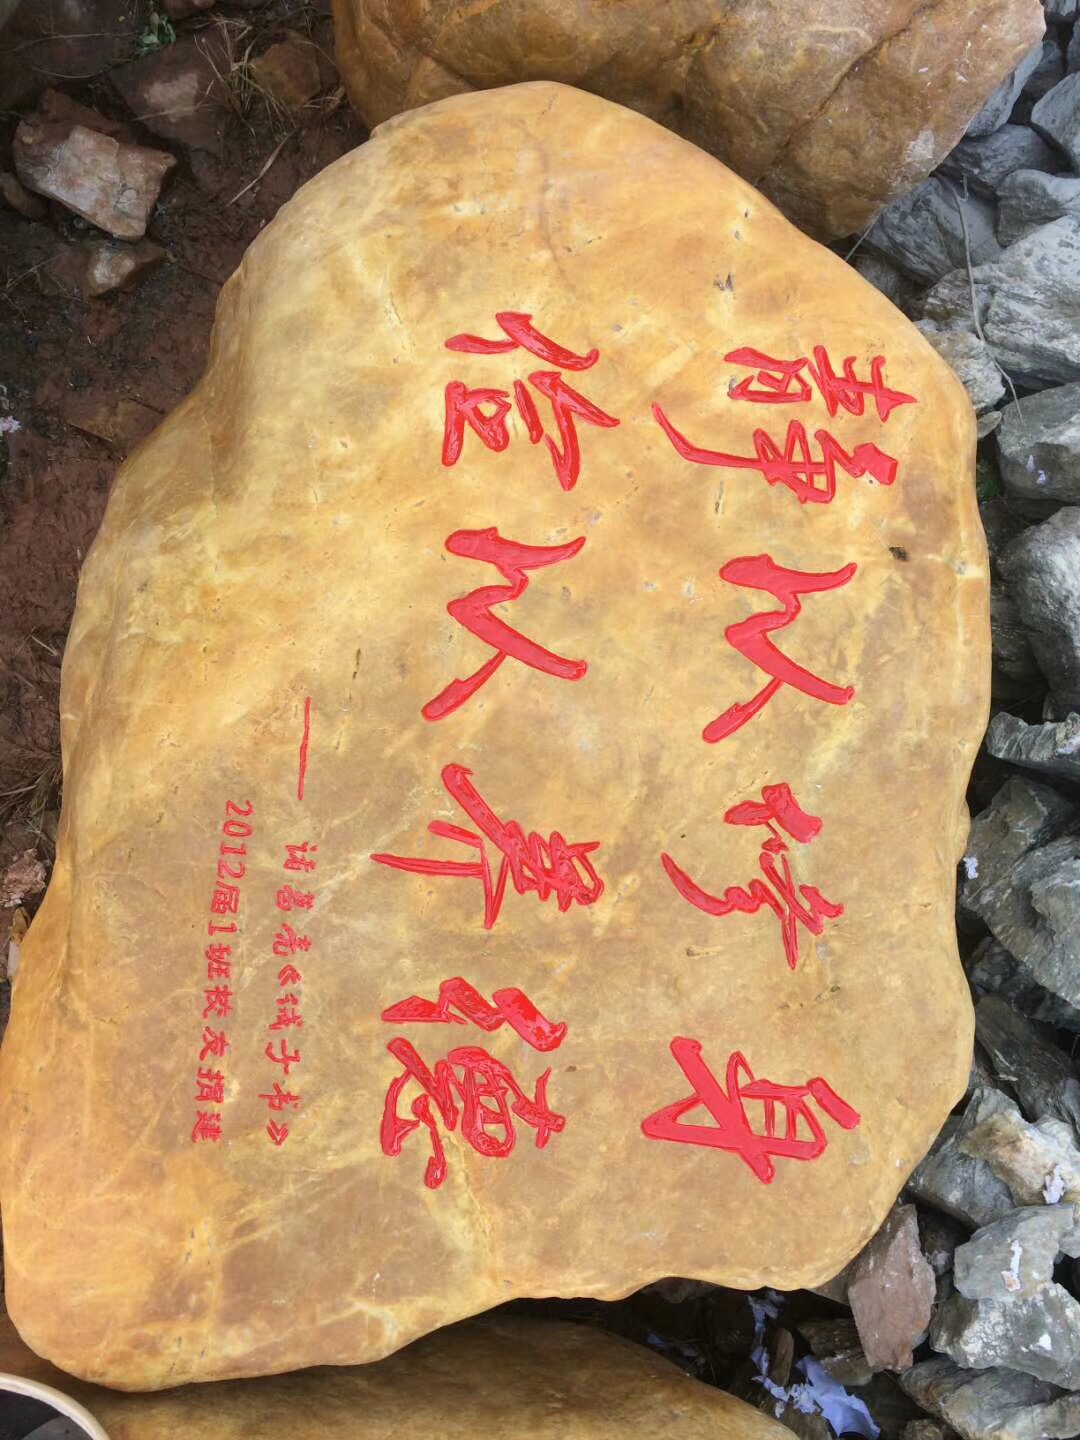 静以修身
俭以养德
——诸葛亮《诫子书》
2012届1班校友捐建